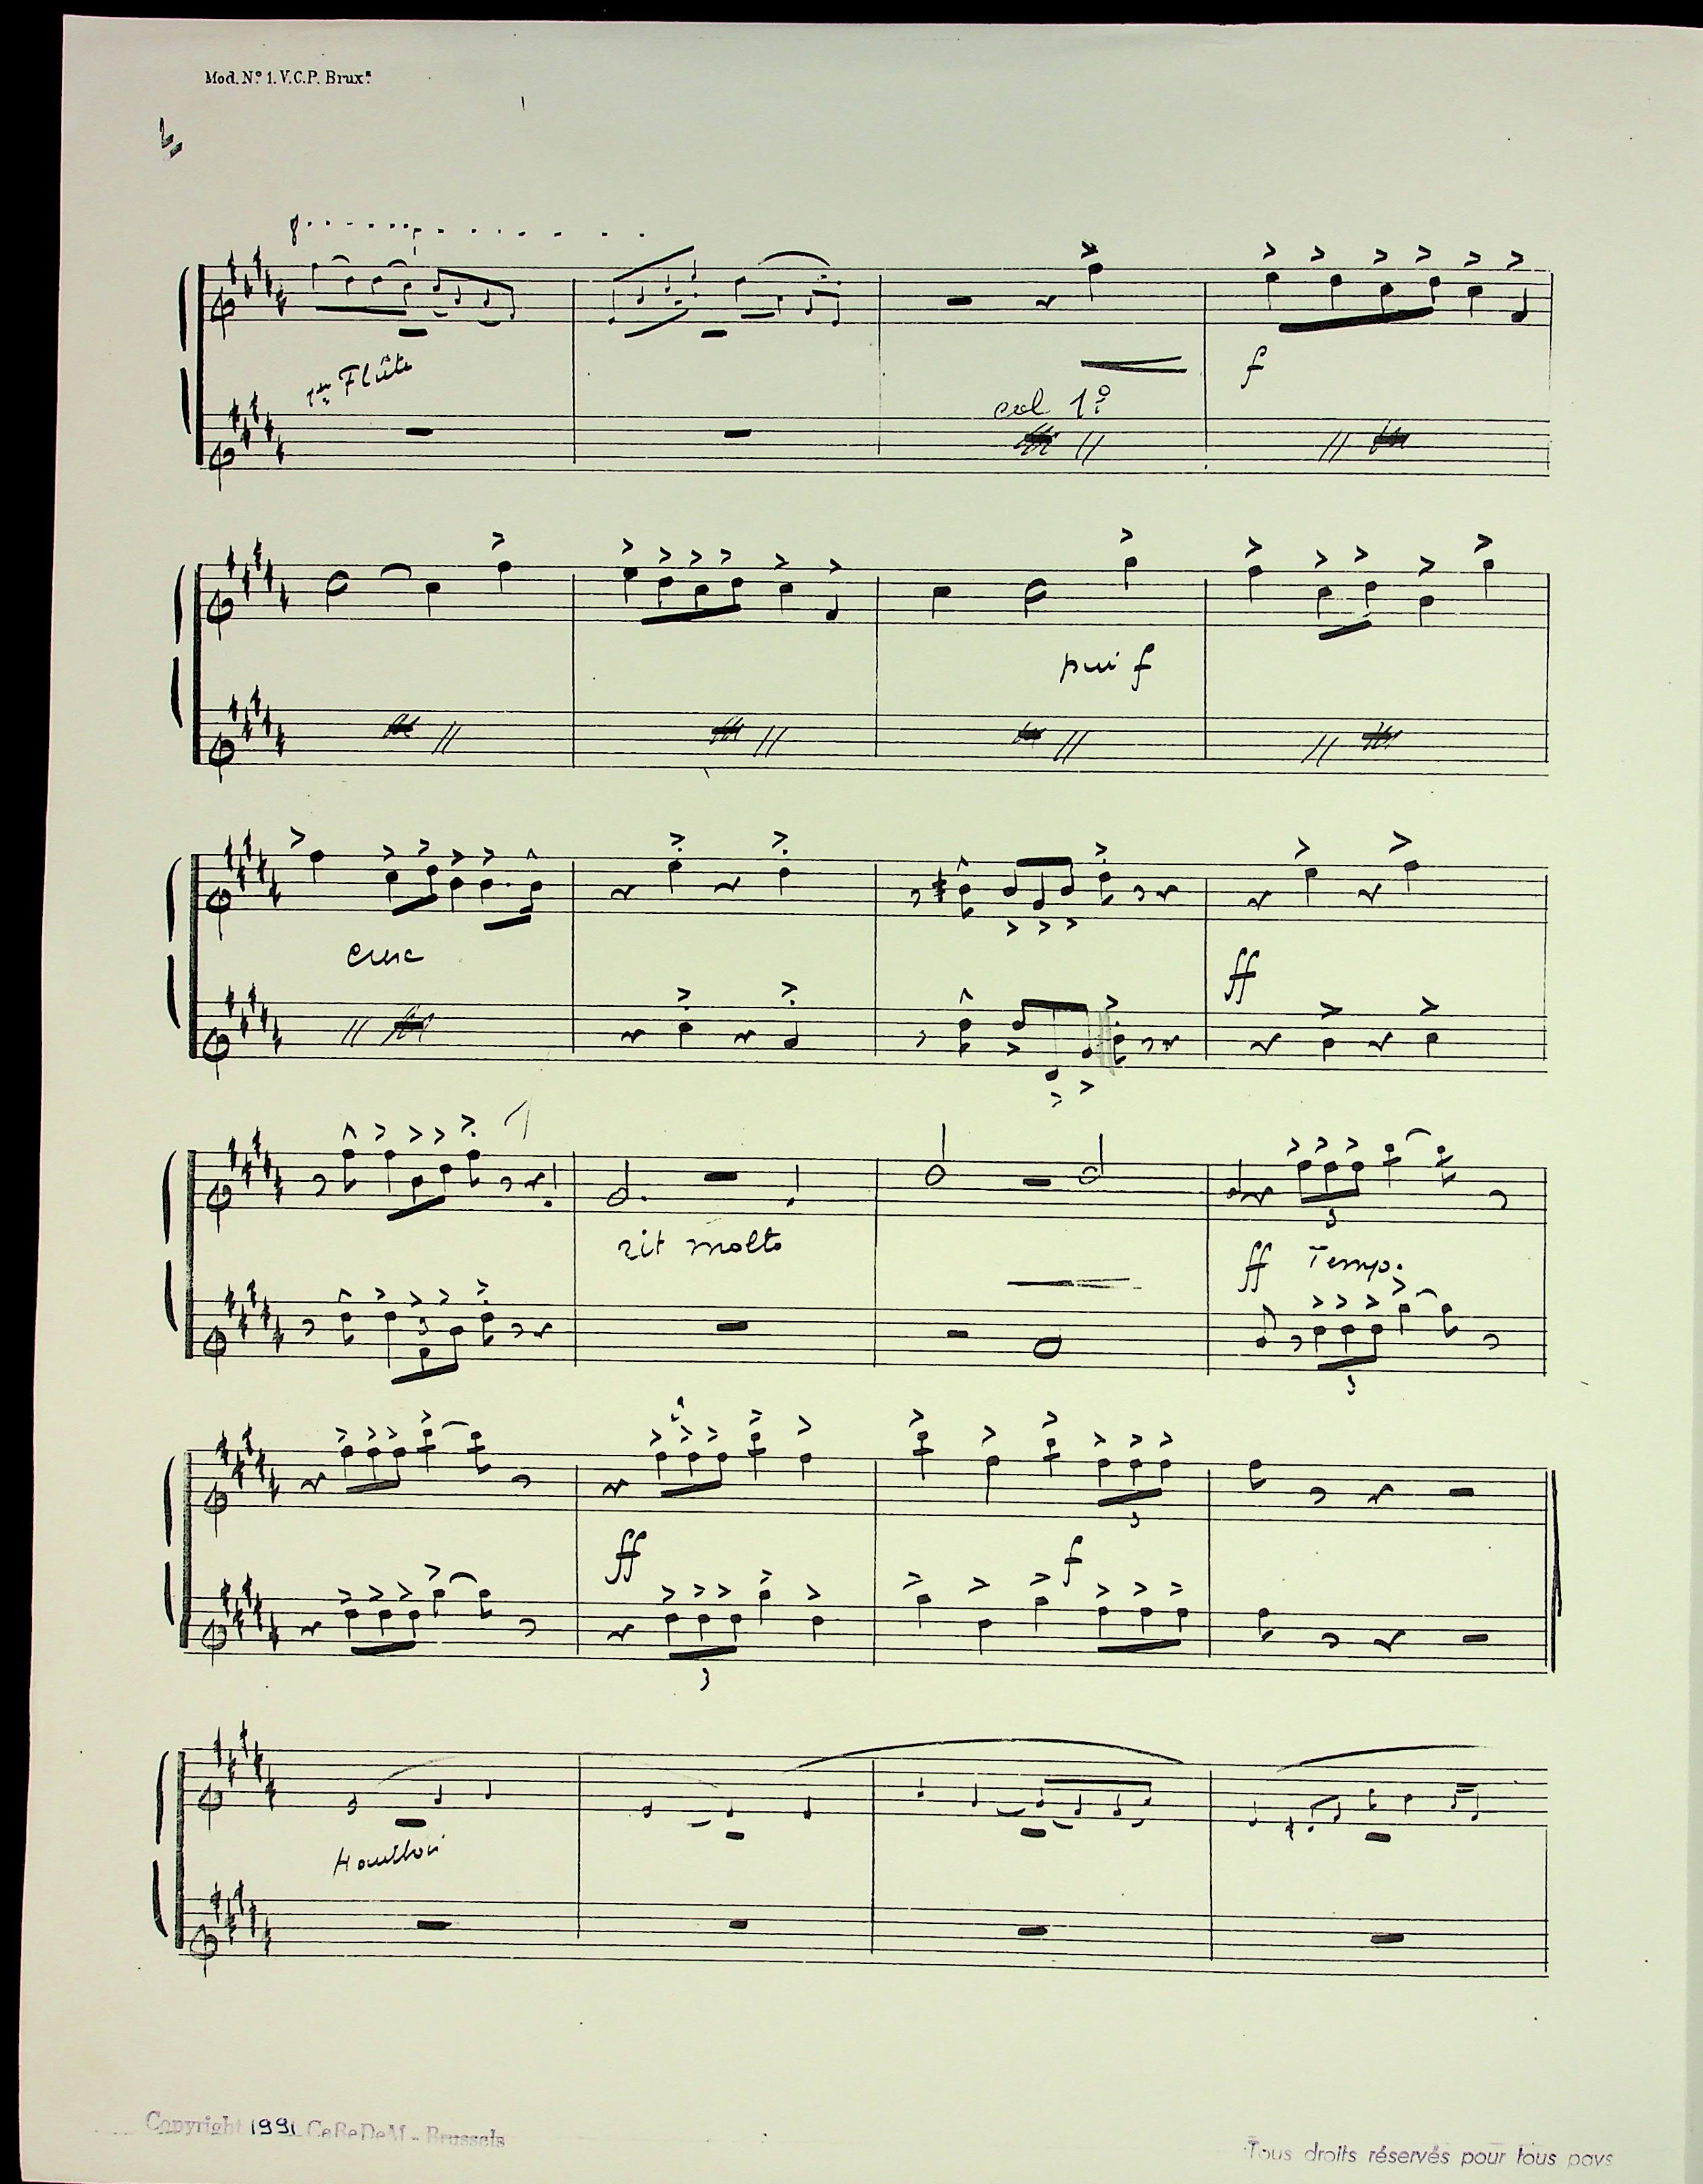 Mod. Nº 1. V.C.P. Brux.
8
1re Flûte
col 1º
f
f
cresc
ff
rit molto
ff Tempo
3
3
ff
f
3
3
Hautbois
Copyright 1991 CeBeDeM - Brussels
Tous droits réservés pour tous pays